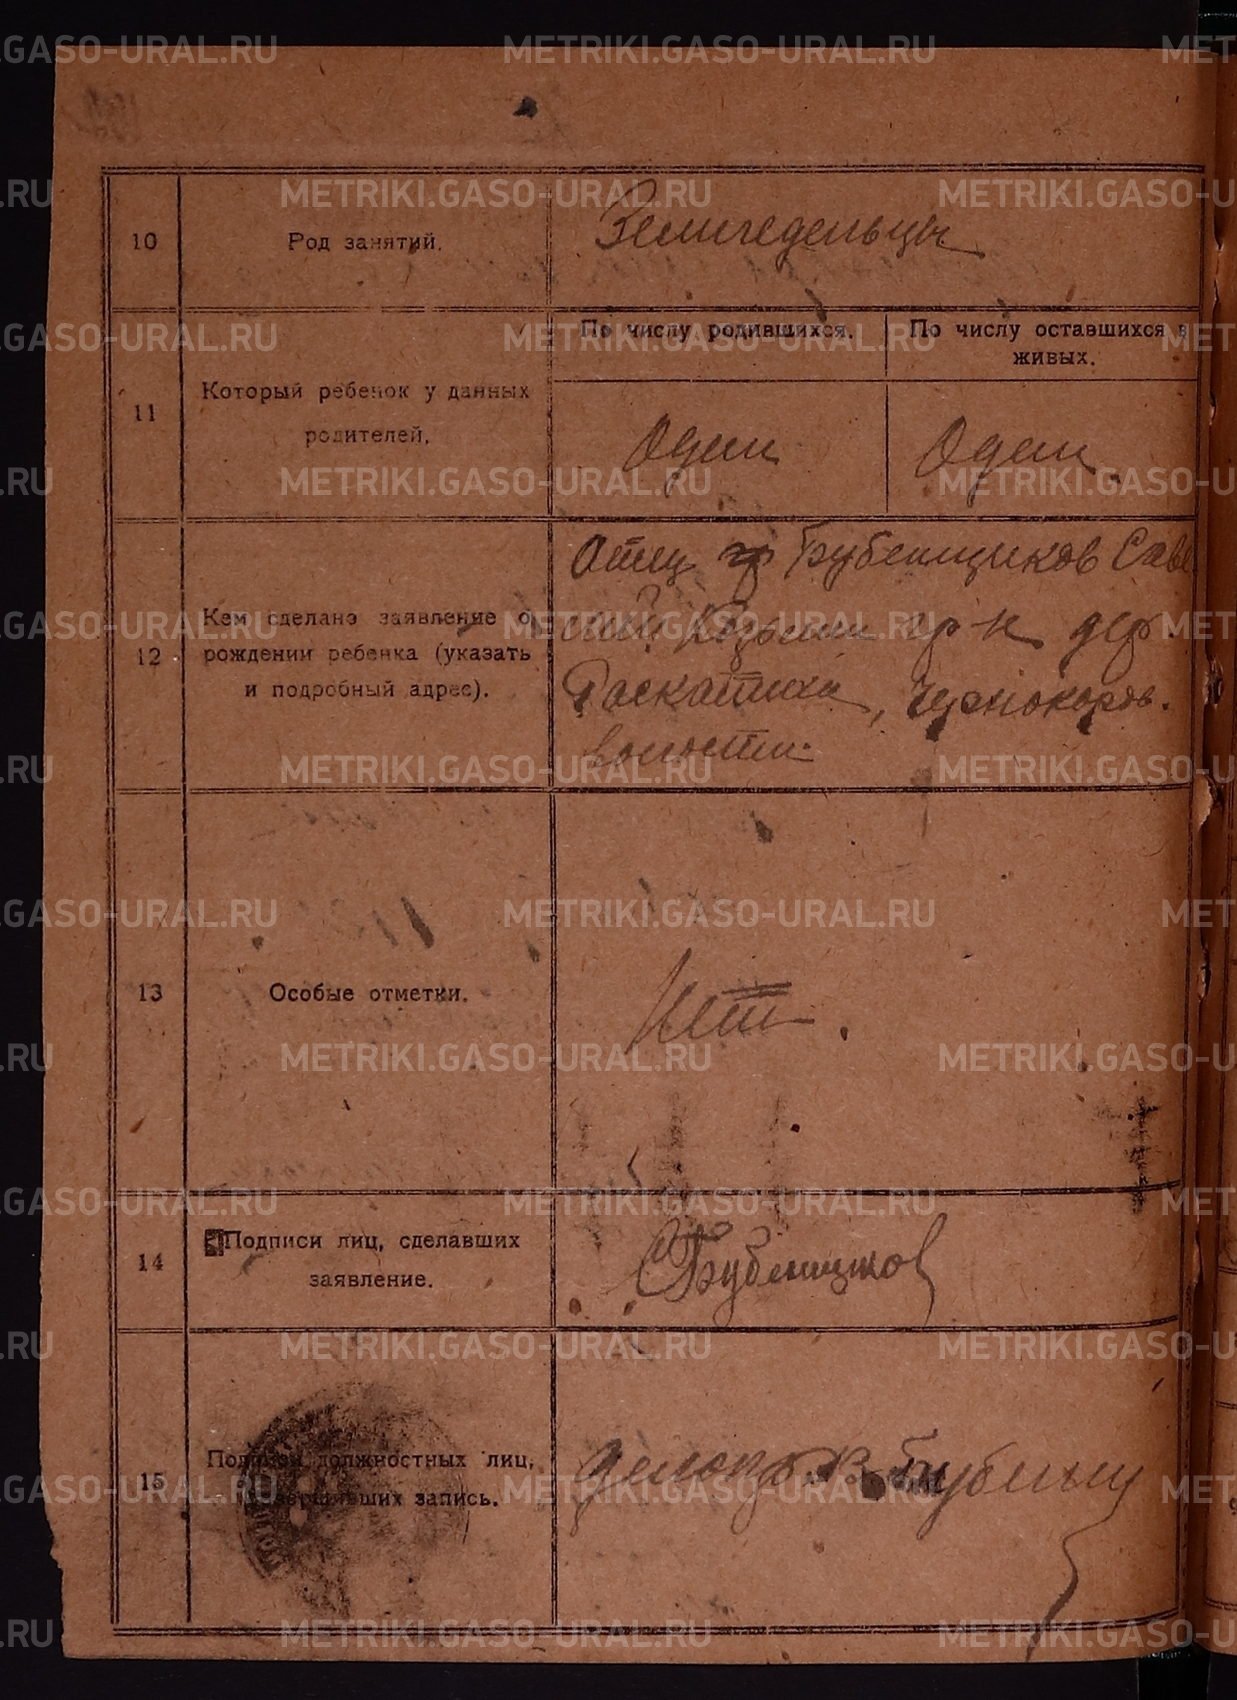 10
Род занятий.
Земледельцы
11
Который ребенок у данных
родителей.
По числу родившихся.
По числу оставшихся в
живых.
Один
Один
12
Кем сделано заявление о
рождении ребенка (указать
и подробный адрес).
Отец гр Бубенщиков Саве
лий Козьмич гр-н дер.
Раскатиха, Чернокоров.
волости.
13
Особые отметки.
Нет.
14
Подписи лиц, сделавших
заявление.
С Бубенщиков
15
Подписи должностных лиц,
совершивших запись.
METRIKI.GASO-URAL.RU